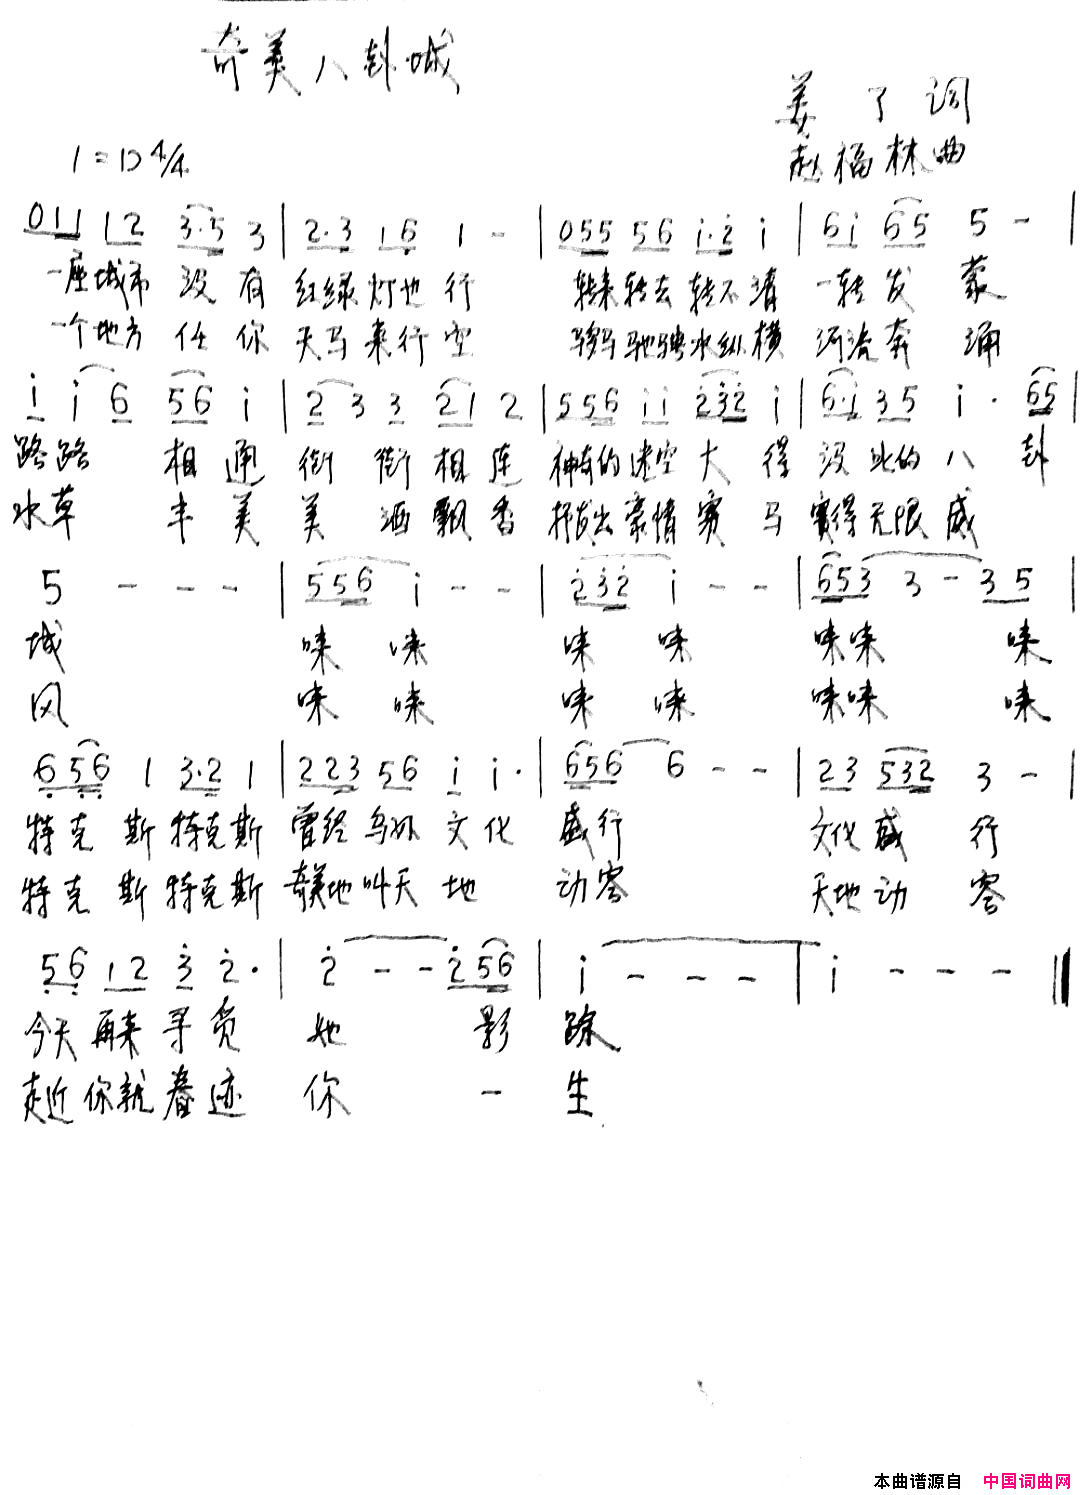 奇美八卦城
姜 了 词
1=D 4/4
赵福林曲
0 1 1 1 2 3·5 3 | 2·3 1 6 1 - | 0 5 5 5 6 i·2 i | 6 i 6 5 5 - |
一座城市 没 有 红绿灯也 行 转来转去 转不清 一转 发 蒙
一个地方 任 你 天马来行空 驰骋 纵横 河流奔 涌
i i 6 5 6 i | 2 3 3 2 1 2 | 5 5 6 i i 2 3 2 i | 6·i 3 5 i · 6 5 |
路路 相 通 街 街 相 连 神奇的迷空 大 得 没 比的 八 卦
水草 丰 美 美 酒 飘 香 豪情 赛 马 赛得无限 威
5 - - - | 5 5 6 i - - | 2 3 2 i - - | 6 5 3 3 - 3 5 |
城 唻 唻 唻 唻 唻唻 唻
风 唻 唻 唻 唻 唻唻 唻
6 5 6 1 3·2 1 | 2 2 3 5 6 i i· | 6 5 6 6 - - | 2 3 5 3 2 3 - |
特 克 斯 特克斯 曾经 乌孙 文 化 盛行 文化 盛 行
特 克 斯 特克斯 奇美地叫天 地 动容 天地 动 容
5 6 1 2 3 2· | 2 - - 2 5 6 | i - - - | i - - - ‖
今天 再来 寻 觅 她 影 踪
走近 你就 眷 你 一 生
本曲谱源自 中国词曲网